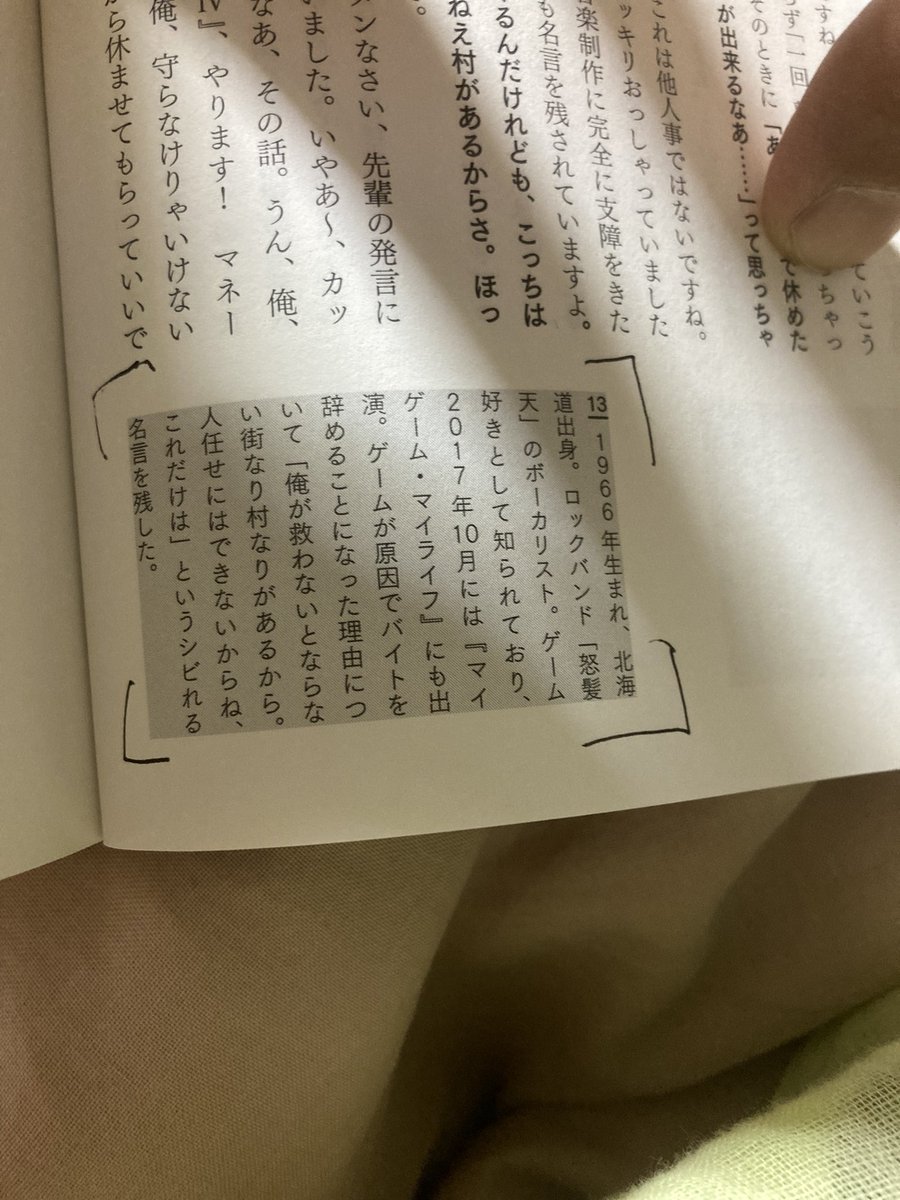 すね ていこう
らず「一回 ちゃっ
そのときに「あ で休めた
が出来るなあ……」って思っちゃ
これは他人事ではないですね。
ッキリおっしゃっていました
音楽制作に完全に支障をきた
も名言を残されていますよ。
るんだけれども、こっちは
ねえ村があるからさ。ほっ
。
メンなさい、先輩の発言に
いました。いやあ〜、カッ
なあ、その話。うん、俺、
Ⅳ』、やります！　マネー
俺、守らなけりゃいけない
から休ませてもらっていいで
13 1966年生まれ、北海
道出身。ロックバンド「怒髪
天」のボーカリスト。ゲーム
好きとして知られており、
2017年10月には『マイ
ゲーム・マイライフ』にも出
演。ゲームが原因でバイトを
辞めることになった理由につ
いて「俺が救わないとならな
い街なり村なりがあるから。
人任せにはできないからね、
これだけは」というシビれる
名言を残した。